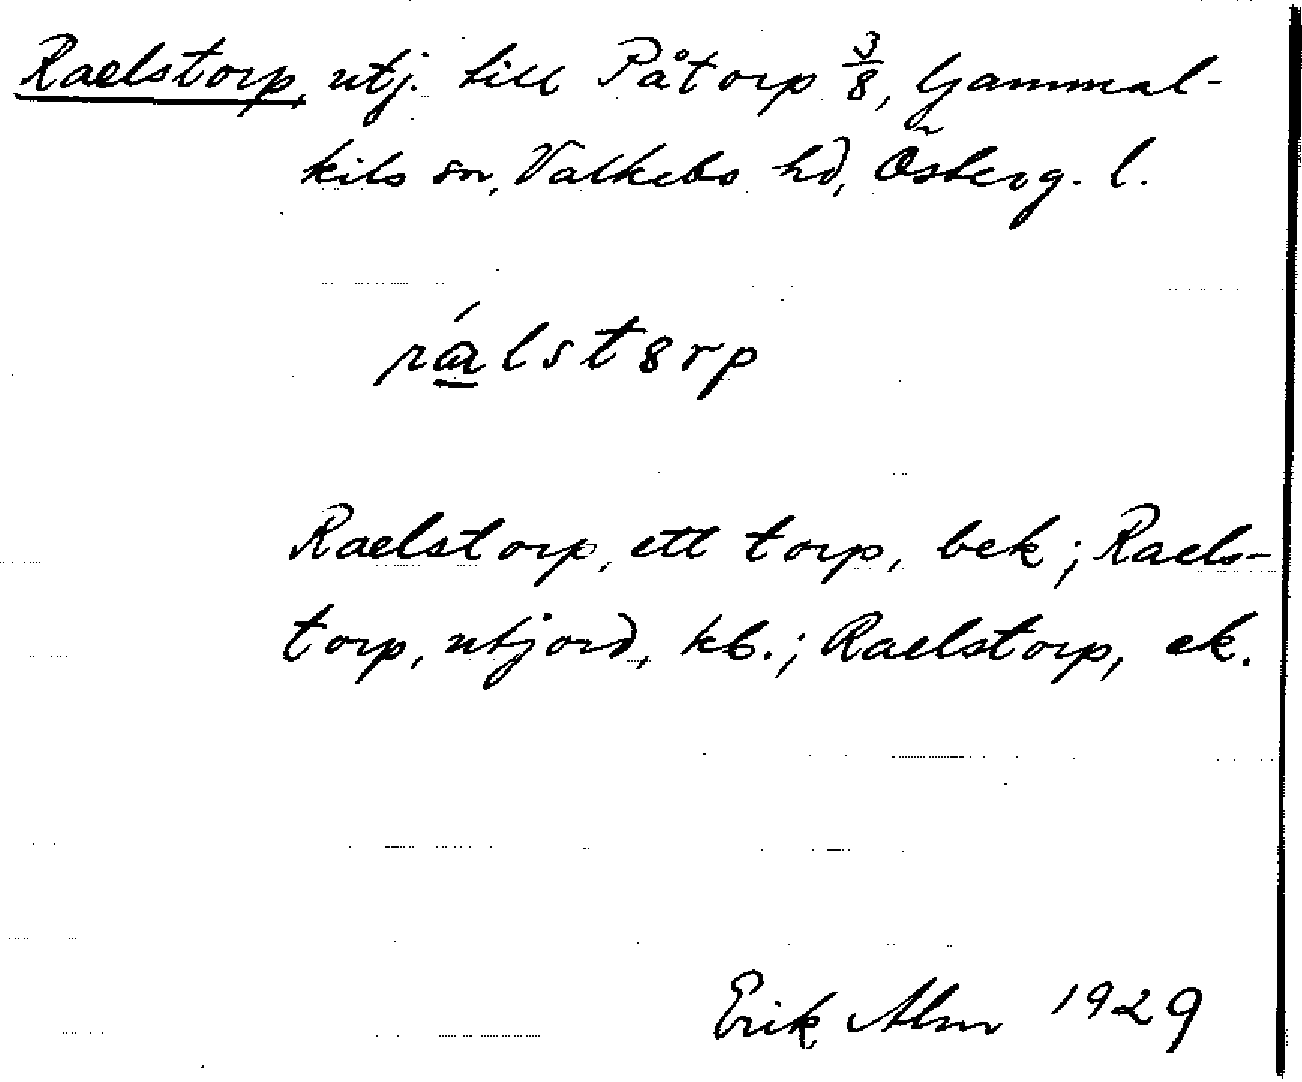 Raelstorp, utj. till Påtorp 3/8, Gammal-
kils sn, Valkebo hd, Österg. l.
rá̱lstȣrp
Raelstorp, ett torp, bek; Raels-
torp, utjord, kb.; Raelstorp, ek.
Erik Alm 1929